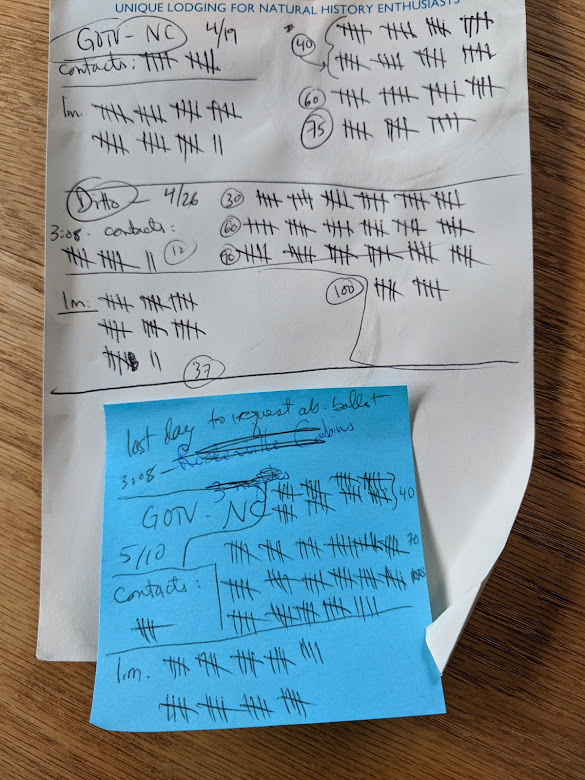 UNIQUE LODGING FOR NATURAL HISTORY ENTHUSIASTS
GOTV - NC 4/19
contacts:
40
lm.
60
75
Ditto - 4/26
30
3:08 - contacts:
60
12
90
lm:
100
37
last day to request ab. ballot
3:08 -
GOTV - NC
40
5/10
70
Contacts:
lm.